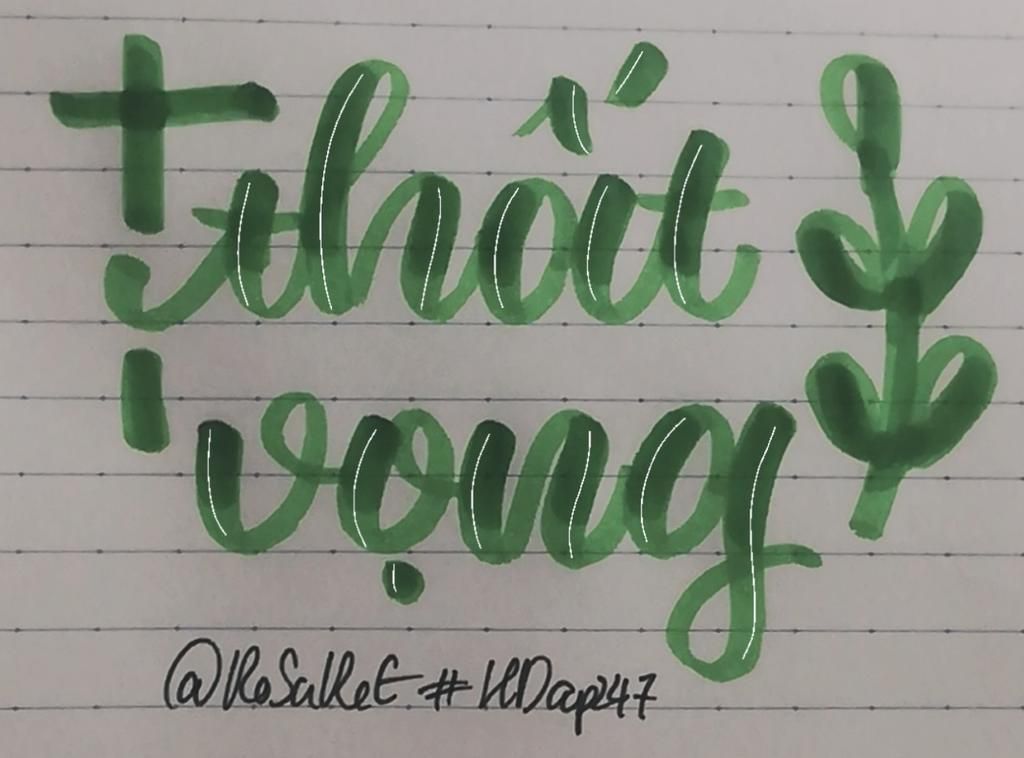 thất
vọng
@KoSaKeE #HDap247